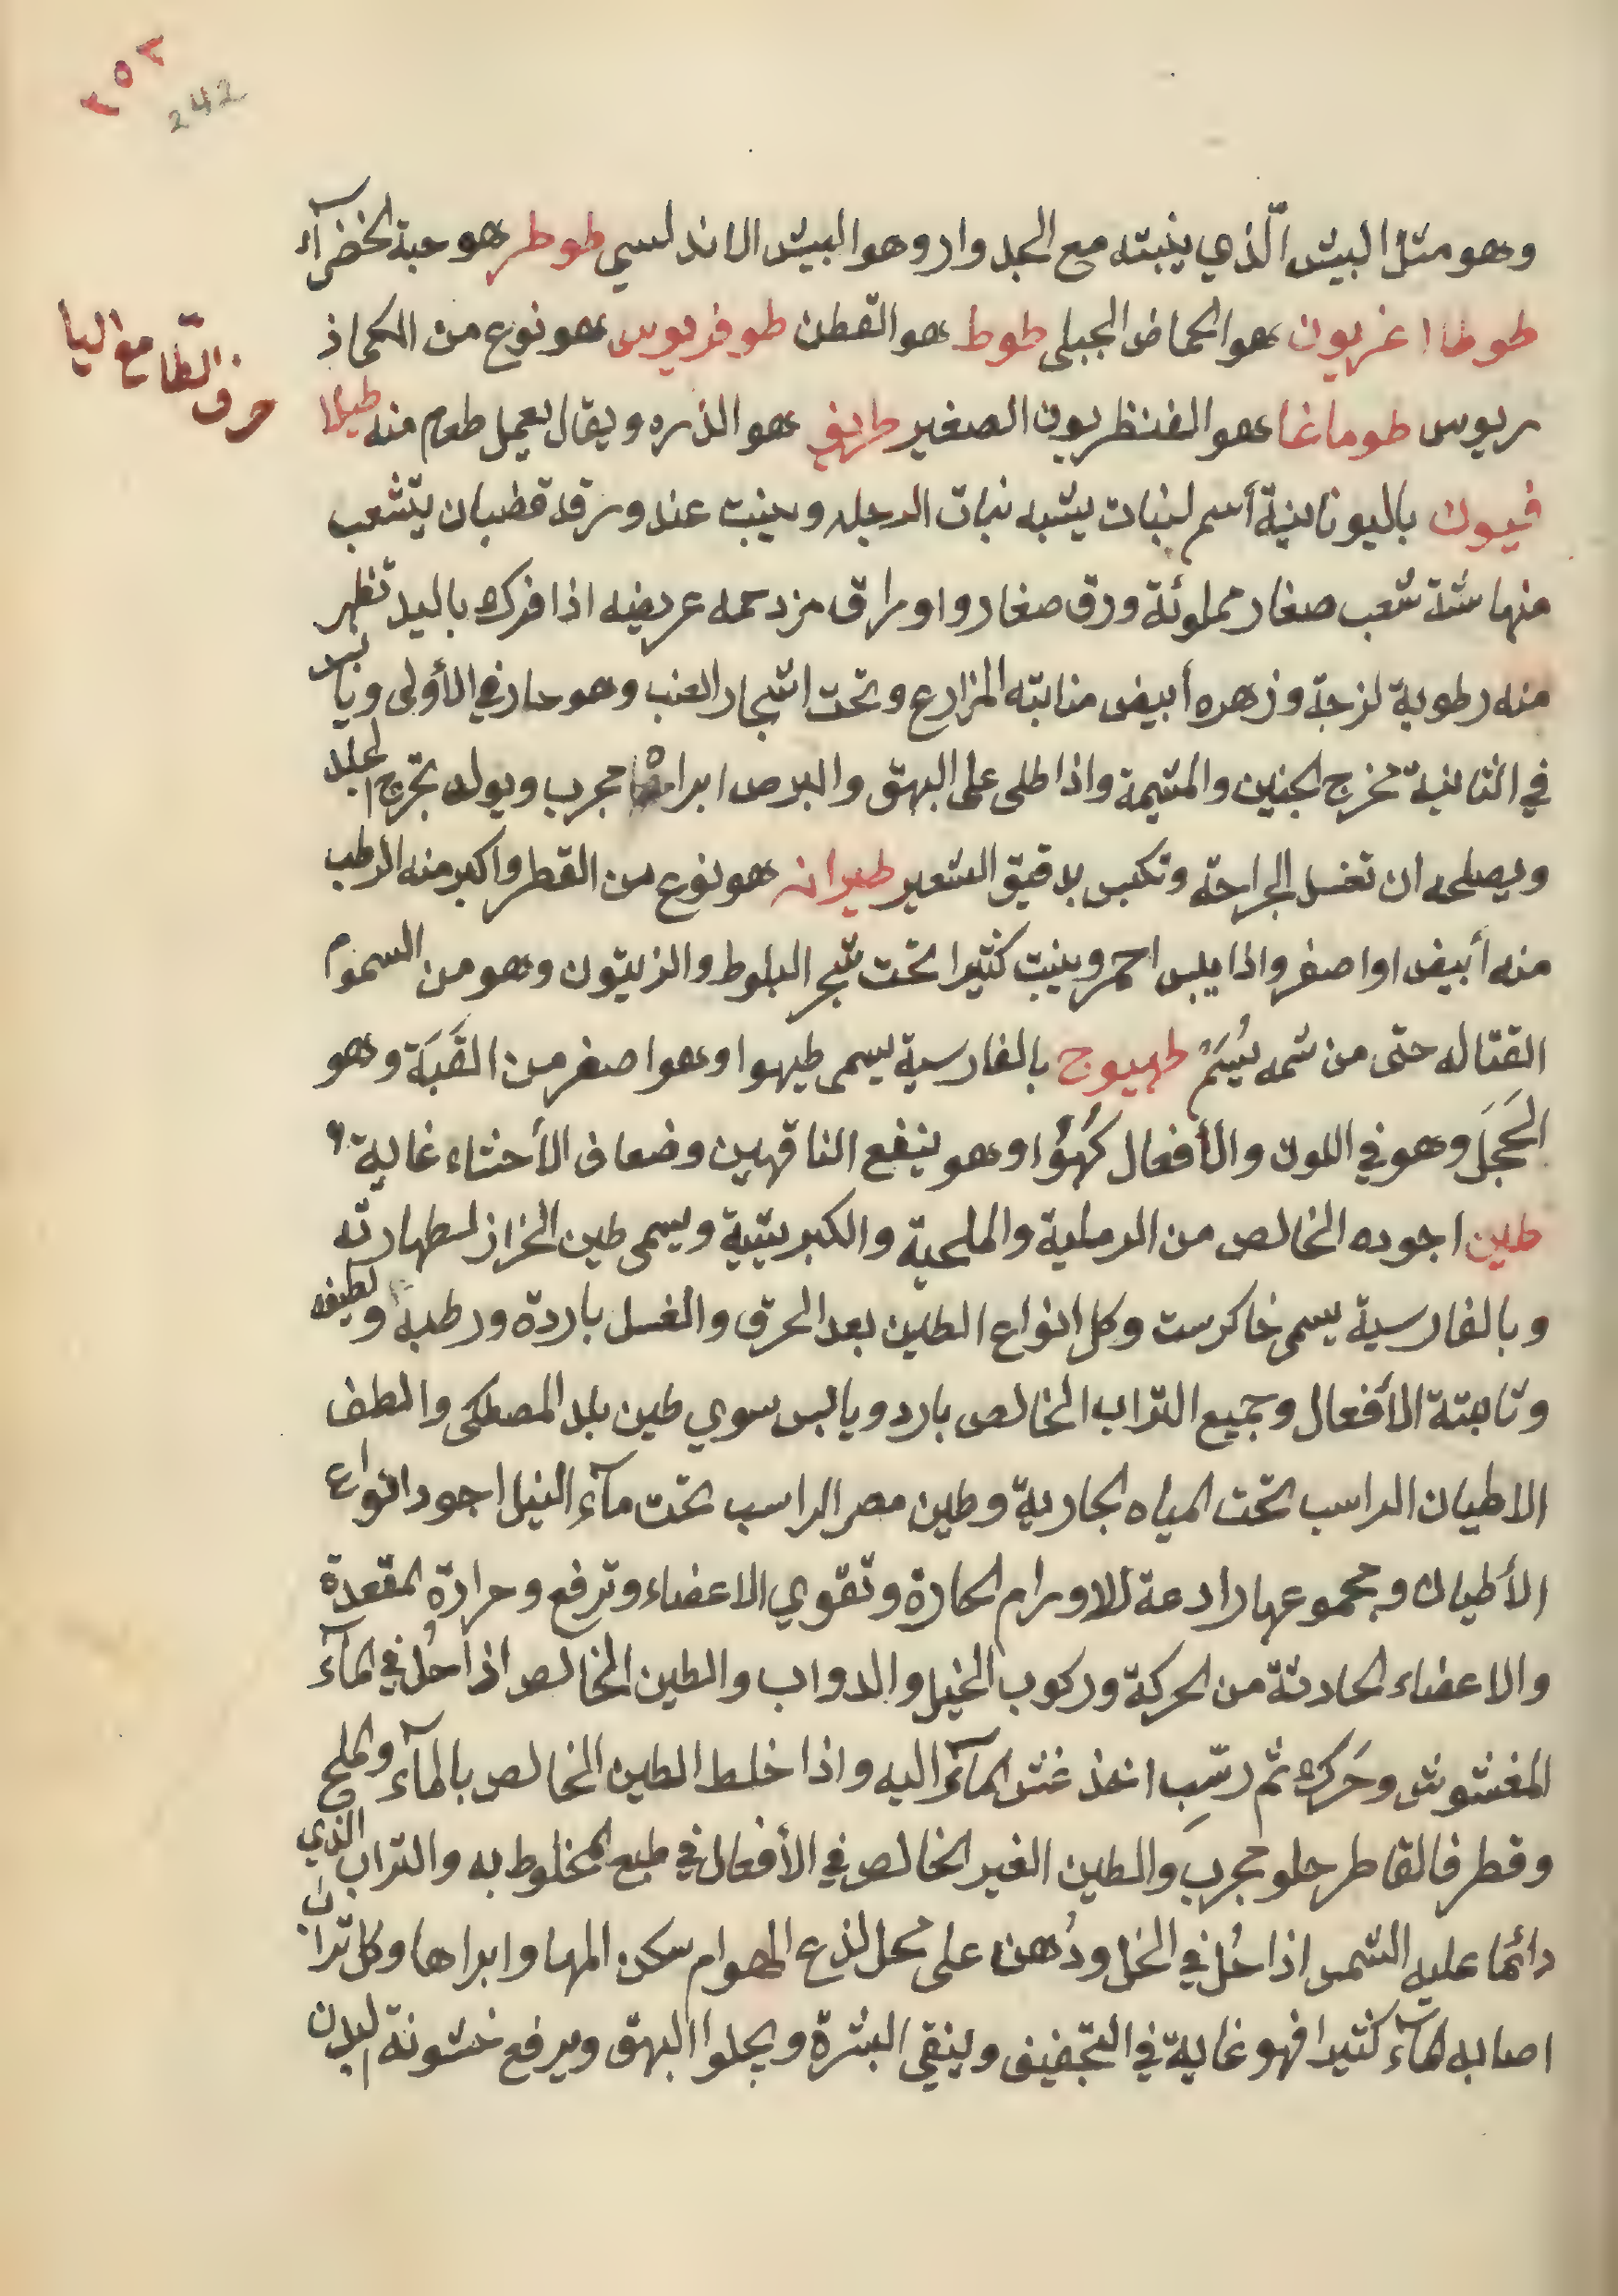 ٢٥٢
242
وهو مثل البيش الّذي ينبته مع الجدوار وهو البيش الاندلسي طوطر هو حبة الخضرآء
طوطا اغريون هو الحماض الجبلي طوط هو القطن طوفريوس هو نوع من الكماذ
ريوس طوماغا هو القنظريون الصغير طريفي هو الذره ويقال يعمل طعام منه طيلا
فيون باليونانية أسم لنبات يشبه نبات الرجله وينبت عند ورقه قضبان يتشعب
منها ستة شعب صغار مملوئة ورق صغار واوراق مزدحمه عريضه اذا فرك باليد تظهر
منه رطوبة لزجة وزهره أبيض منابته المزارع وتحت اشجار العنب وهو حار في الأولى ويابس
في الثانية تخرج الجنين والمشيمة واذا طلى على البهق والبرص ابراها مجرب ويولد تجرح الجلد
ويصلحه ان تغسل الجراحة وتكبس بدقيق الشعير طيرانه هو نوع من القطر واكبر منه الرطب
منه أبيض او اصفر واذا يبس احمر وينبت كثيرا تحت شجر البلوط والزيتون وهو من السموم
القتاله حتى من شمه يُسَمْ طهيوج بالفارسية يسمى طيهوا وهوا صغر من القَبَة وهو
الحَجَل وهو في اللون والأفعال كهُوُا وهو ينفع الناقهين وضعاف الأحشاء غاية
طين اجوده الخالص من الرملية والملحية والكبريتية ويسمى طين الخزاز لطهارته
وبالفارسية يسمى خاكرست وكل انواع الطين بعد الحرق والغسل باردة ورطبة ولطيفه
وتابتة الأفعال وجميع التراب الخالص بارد ويابس سوي طين بلد المصطكى والطف
الاطيان الراسب تحت المياه الجارية وطين مصر الراسب تحت مآء النيل اجود انواع
الأطيان ومجموعها رادعة للاورام الحارة وتقوي الاعضاء وترفع وحرارة المقعدة
والاعضاء الحادثة من الحركة وركوب الخيل والدواب والطين الخالص اذا حُل في المآء
المغشوش وحَرك ثم رسّب اخذ غش المآء اليه واذا خلط الطين الخالص بالمآء والملح
وقطر فالقاطر حلو مجرب والطين الغير الخالص في الأفعال في طبع المخلوط به والتراب الذي
دائما عليه الشمس اذا حُل في الخل ودُهن على محل لذع الهوام سكن المها وابراها وكل تراب
اصابه المآء كثيرا فهو غاية في التجفيف وينقي البشرة ويجلوا البهق ويرفع خشونة البدن
حرف الطّا مع اليا